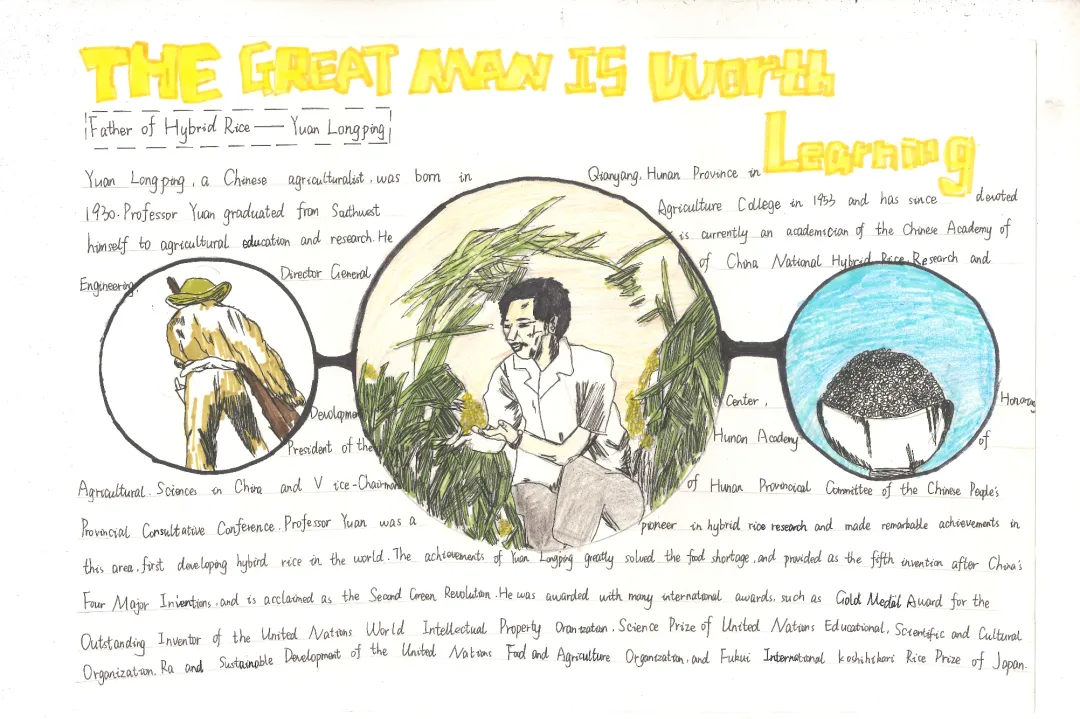 THE GREAT MAN IS Worth
Learning
Father of Hybrid Rice — Yuan Longping
Yuan Longping, a Chinese agriculturalist, was born in Qianyang, Hunan Province in
1930. Professor Yuan graduated from Southwest Agriculture College in 1953 and has since devoted
himself to agricultural education and research. He is currently an academician of the Chinese Academy of
Engineering, Director General of China National Hybrid Rice Research and
Development Center, Honorary
President of the Hunan Academy of
Agricultural Sciences in China and Vice-Chairman of Hunan Provincial Committee of the Chinese People's
Provincial Consultative Conference. Professor Yuan was a pioneer in hybrid rice research and made remarkable achievements in
this area, first developing hybird rice in the world. The achievements of Yuan Longping greatly solved the food shortage, and provided as the fifth invention after China's
Four Major Inventions, and is acclaimed as the Second Green Revolution. He was awarded with many international awards, such as Gold Medal Award for the
Outstanding Inventor of the United Nations World Intellectual Property, Science Prize of United Nations Educational, Scientific and Cultural
Organization, Ra and Sustainable Development of the United Nations Food and Agriculture Organization, and Fukui International koshihikari Rice Prize of Japan.